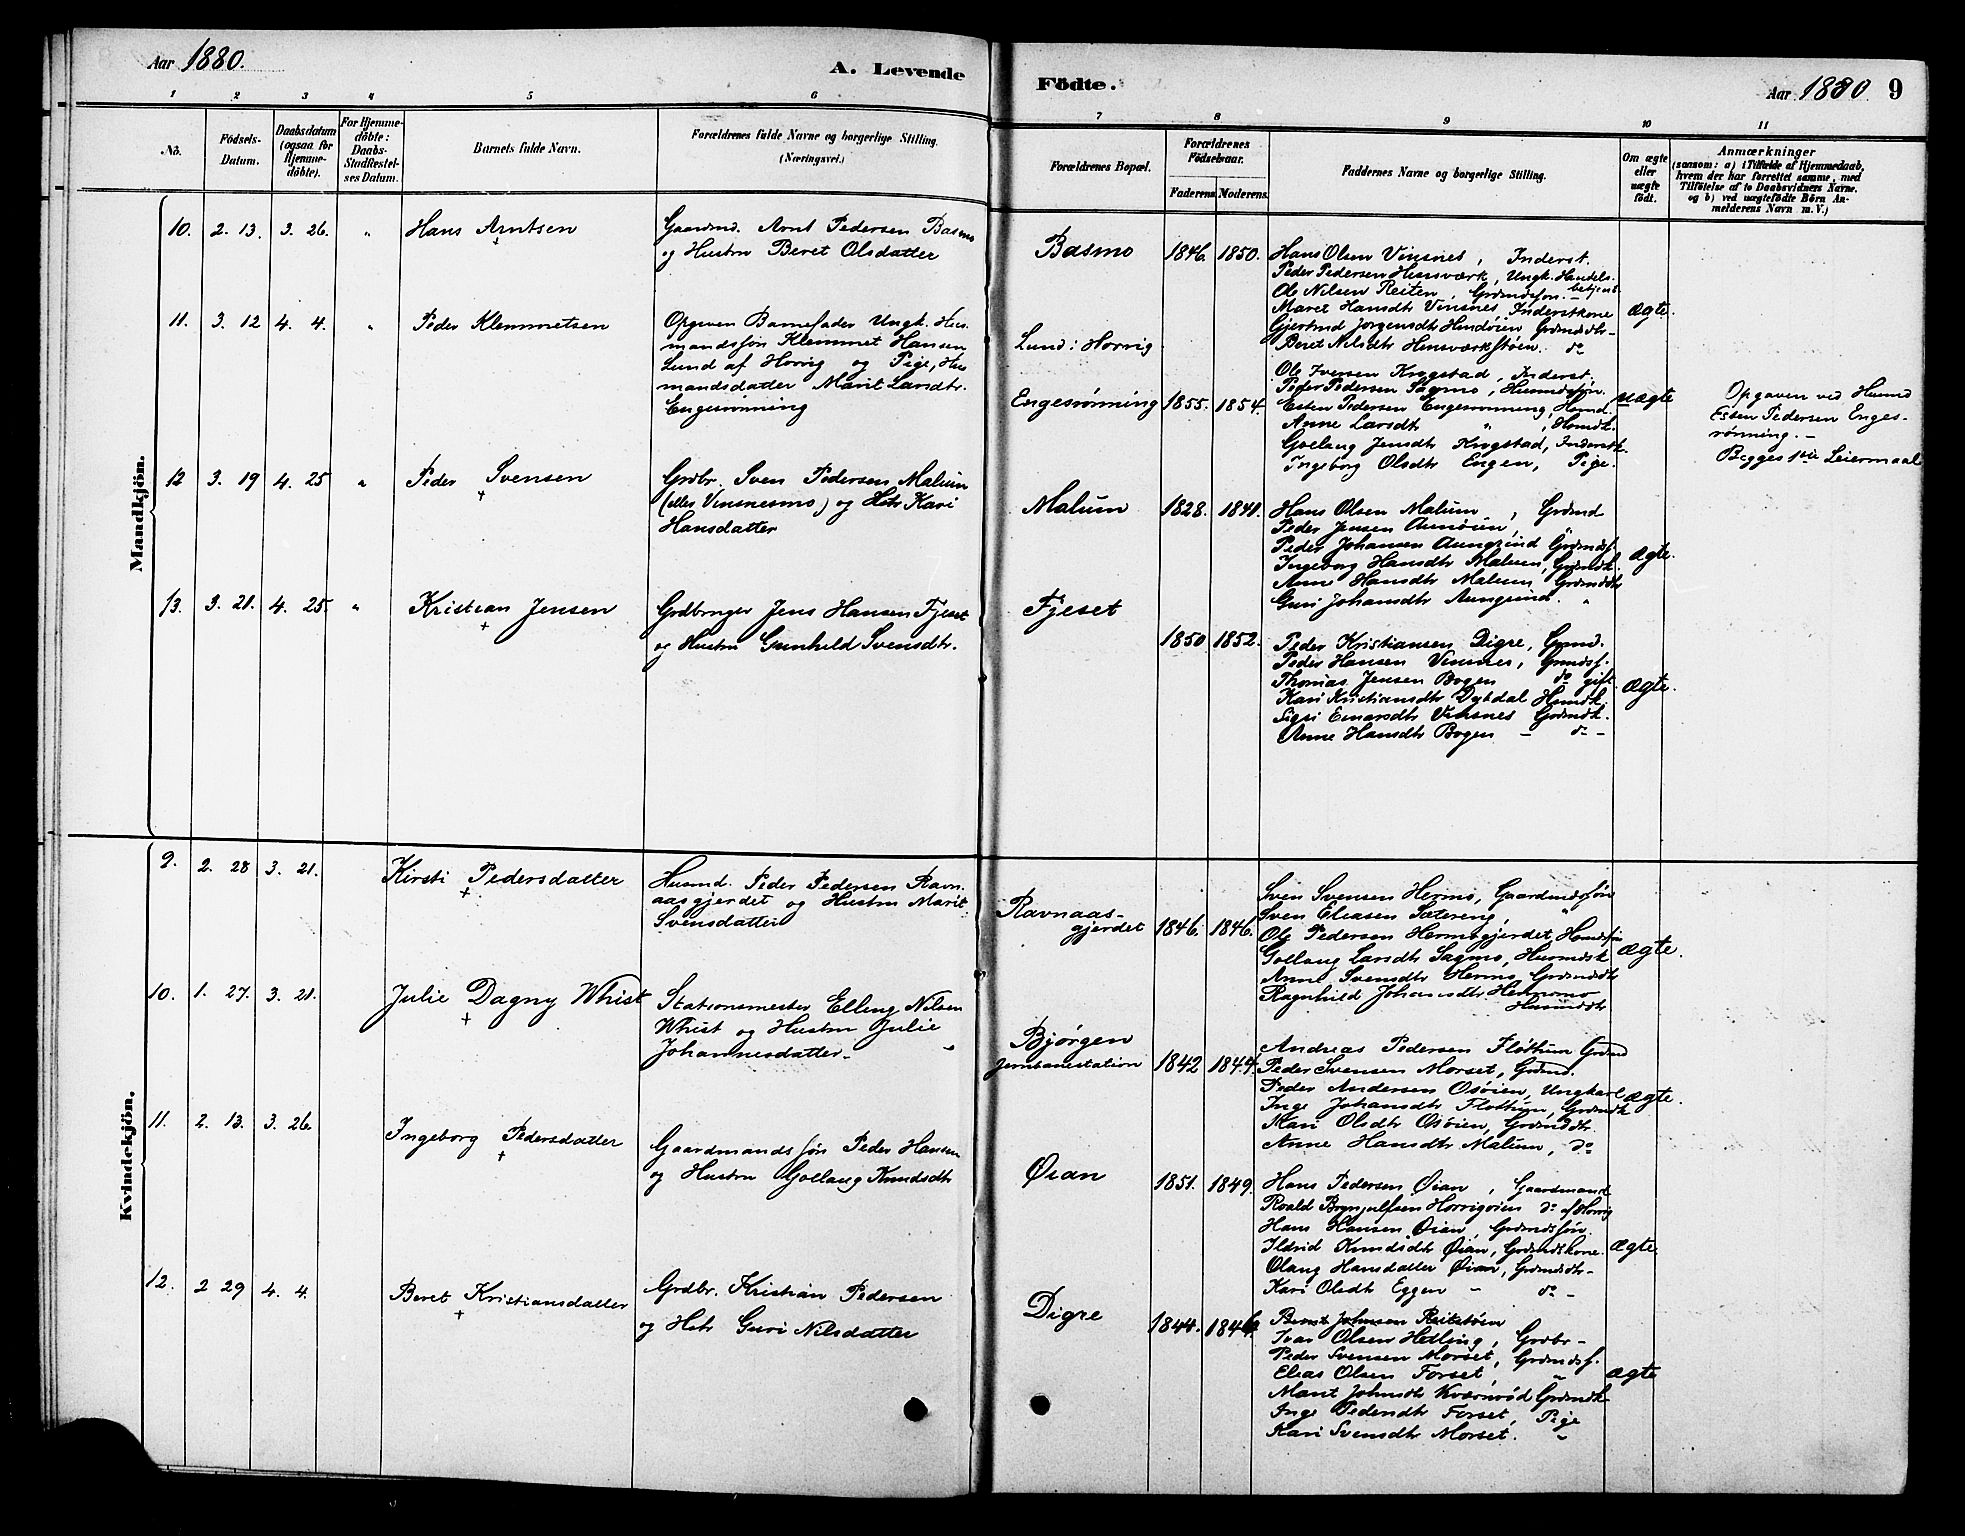 Aar 1880.
A. Levende
1 2 3 4 5 6
No.
Födsels-
Datum.
Daabsdatum
(ogsaa for
Hjemme-
döbte).
For Hjemme-
döbte:
Daabs-
Stadfæstel-
ses Datum.
Barnets fulde Navn.
Forældrenes fulde Navne og borgerlige Stilling.
(Næringsvei.)
Mandkjön.
10. 2. 13. 3. 26. "
Hans Arntsen
Gaardmd. Arnt Pedersen Basmo
og Hustru Beret Olsdatter
11. 3. 12 4. 4. "
Peder Klemmetsen
Opgiven Barnefader Ungk. Hus-
mandssøn Klemmet Hansen
Lund af Horrig og Pige, Hus
mandsdatter Marit Larsdtr.
Engesrønning
12 3. 19 4. 25 "
Peder Svensen
Grdbr. Sven Pedersen Malum
(eller Vinsnesmo) og Hstr Kari
Hansdatter
13. 3. 21. 4. 25. "
Kristian Jensen
Grdbruger Jens Hansen Fjeset
og Hustru Gunhild Svensdtr.
Kvindekjön.
9. 2. 28 3. 21.
Kirsti Pedersdatter
Husmd. Peder Pedersen Ravn-
aasgjerdet og Hustru Marit
Svensdatter
10. 1. 27. 3. 21.
Julie Dagny Whist
Stationsmester Elling Nilsen
Whist og Hustru Julie
Johannesdatter - "
11. 2. 13. 3. 26.
Ingeborg Pedersdatter
Gaardmandssøn Peder Hansen
og Hustru Gollaug Knudsdtr
12. 2 29 4. 4.
Beret Kristiansdatter
Grdbr. Kristian Pedersen
og Hstr Guri Nilsdatter
Födte.
Aar 1880 9
7 8 9 10 11
Forældrenes Bopæl.
Forældrenes
Födselsaar.
Faderens Moderens.
Faddernes Navne og borgerlige Stilling.
Om ægte
eller
uægte
födt.
Anmærkninger
(saasom: a) i Tilfælde af Hjemmedaab,
hvem der har forrettet samme, med
Tilföielse af to Daabsvidners Navne.
og b) ved uægtefödte Börn An-
melderens Navn m. V.)
Basmo 1846. 1850.
Hans Olsen Vinsnes, Inderst.
Peder Pedersen Hinsværk, Ungk. Handels-
betjent
Ole Nilsen Reiten, Grdmdssøn. -
Maret Hansdtr Vinsnes, Inderstkone
Gjertrud Jørgensdtr Hindøien Grdmdsdtr-
Beret Nilsdtr Hinsværkstøen. do
ægte.
Lund: Horrig
Engesrønning 1855. 1854.
Ole Iversen Krogstad, Inderst.
Peder Pedersen Sagmo, Husmdssøn.
Esten Pedersen Engesrønning, Husmd.
Anne Larsdtr " , Husmdk.
Gollaug Jensdtr Krogstad, Inderstk.
Ingeborg Olsdtr Engen, Pige.
uægte
Opgiven ved Husmd
Esten Pedersen Enges-
rønning. -
Begges 1ste Leiermaal
Malum 1828. 1841.
Hans Olsen Malum, Grdmd
Peder Jensen Aunøien, "
Peder Johansen Aungrind Grdmdsf.
Ingeborg Hansdtr Malum, Grdmdk.
Ann Hansdtr Malum, Grdmddtr
Guri Johansdtr Aungrind. "
ægte.
Fjeset
1850 1852.
Peder Kristiansen Digre, Grmd.
Peder Hansen Vinsnes, Grmdsf.
Thomas Jensen Bogen do gift.
Kari Kristiansdtr Dybdal Husmdk.
Sigri Einarsdtr Vinsnes Grdmdk.
Anne Hansdtr Bogen - do -
ægte.
Ravnaas-
gjerdet 1846. 1846.
Sven Svensen Hermo, Gaardmdssøn
Sven Eliasen Sætereng, "
Ole Pedersen Hermogjerdet, Husmdssøn
Gollaug Larsdtr Sagmo, Husmdsk
Anne Svensdtr Hermo, Grdmddtr
Ragnhild Johansdtr Hermo
Husmddtr
ægte.
Bjørgen
Jernbanestation 1842 1844.
Andreas Pedersen Fløttum Grdmd
Peder Svensen Morset, Grdmd.
Peder Andersen Osøien, Ungkarl
Inge Johansdtr Fløttum, Grdmdk
Mari Olsdtr Osøien, Grdmddtr.
Anne Hansdtr Malum, do
ægte.
Øian 1851. 1849.
Hans Pedersen Øian, Gaardmand
Roald Brynjulfsen Horrigøien do af Horrig
Hans Hansen Øian, Grdmdssøn.
Ildrid Knudsdtr Øian, Grdmdskone.
Olaug Hansdatter Øian, Grdmddtr-
Kari Olsdtr Eggen - do -
ægte
Digre 1844. 1846
Bernt Johnsen Reitstøen
Ivar Olsen Hetling, Grdbr-
Peder Svensen Morset, Grdmdsf.
Elias Olsen Forset, "
Marit Johnsdtr Kværnrød Grdmdk
Inge Pedersdtr Forset, Pige
Kari Svensdtr Morset. "
ægte